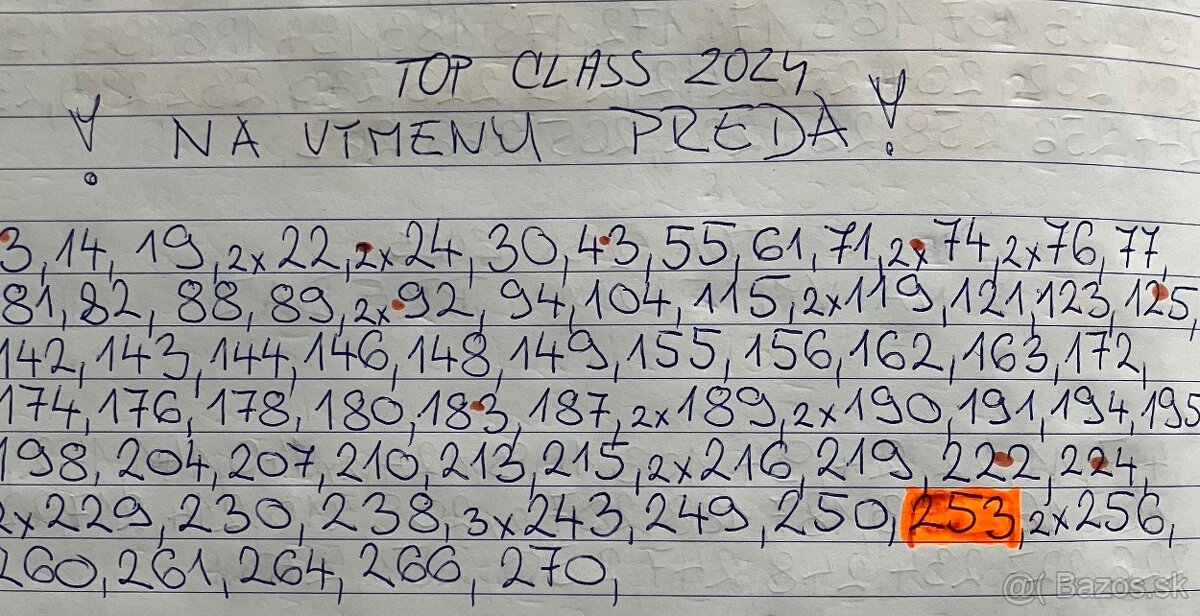 TOP CLASS 2024
! NA VÝMENU PREDÁ !
3, 14, 19, 2x22, 2x24, 30, 43, 55, 61, 71, 2x74, 2x76, 77,
81, 82, 88, 89, 2x92, 94, 104, 115, 2x119, 121, 123, 125,
142, 143, 144, 146, 148, 149, 155, 156, 162, 163, 172,
174, 176, 178, 180, 183, 187, 2x189, 2x190, 191, 194, 195
198, 204, 207, 210, 213, 215, 2x216, 219, 222, 224,
2x229, 230, 238, 3x243, 249, 250, 253, 2x256,
260, 261, 264, 266, 270,
@( Bazos.sk